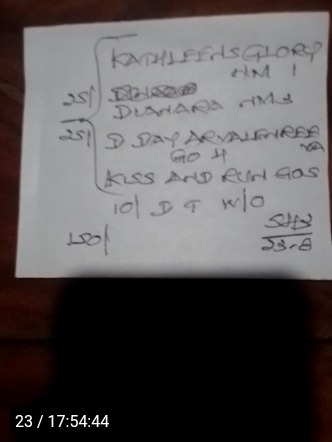 KATHLEENS GLORY
NM 1
25/
DIANARA NM3
25/ D DAY ARVALENREE
GO 4
KISS AND RUN GO5
10/ D T W/O
150/
23-8
23 / 17:54:44